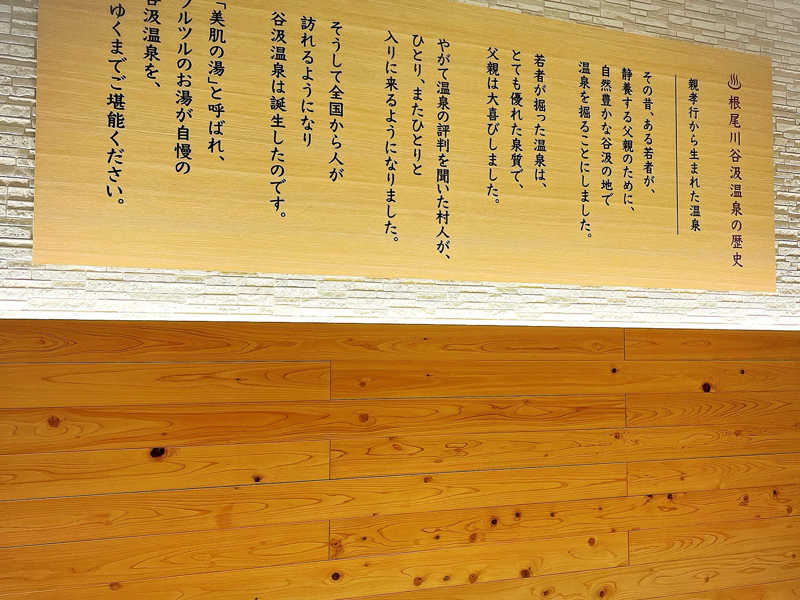 ♨根尾川谷汲温泉の歴史
親孝行から生まれた温泉
その昔、ある若者が、
静養する父親のために、
自然豊かな谷汲の地で
温泉を掘ることにしました。
若者が掘った温泉は、
とても優れた泉質で、
父親は大喜びしました。
やがて温泉の評判を聞いた村人が、
ひとり、またひとりと
入りに来るようになりました。
そうして全国から人が
訪れるようになり
谷汲温泉は誕生したのです。
「美肌の湯」と呼ばれ、
ツルツルのお湯が自慢の
谷汲温泉を、
ゆくまでご堪能ください。